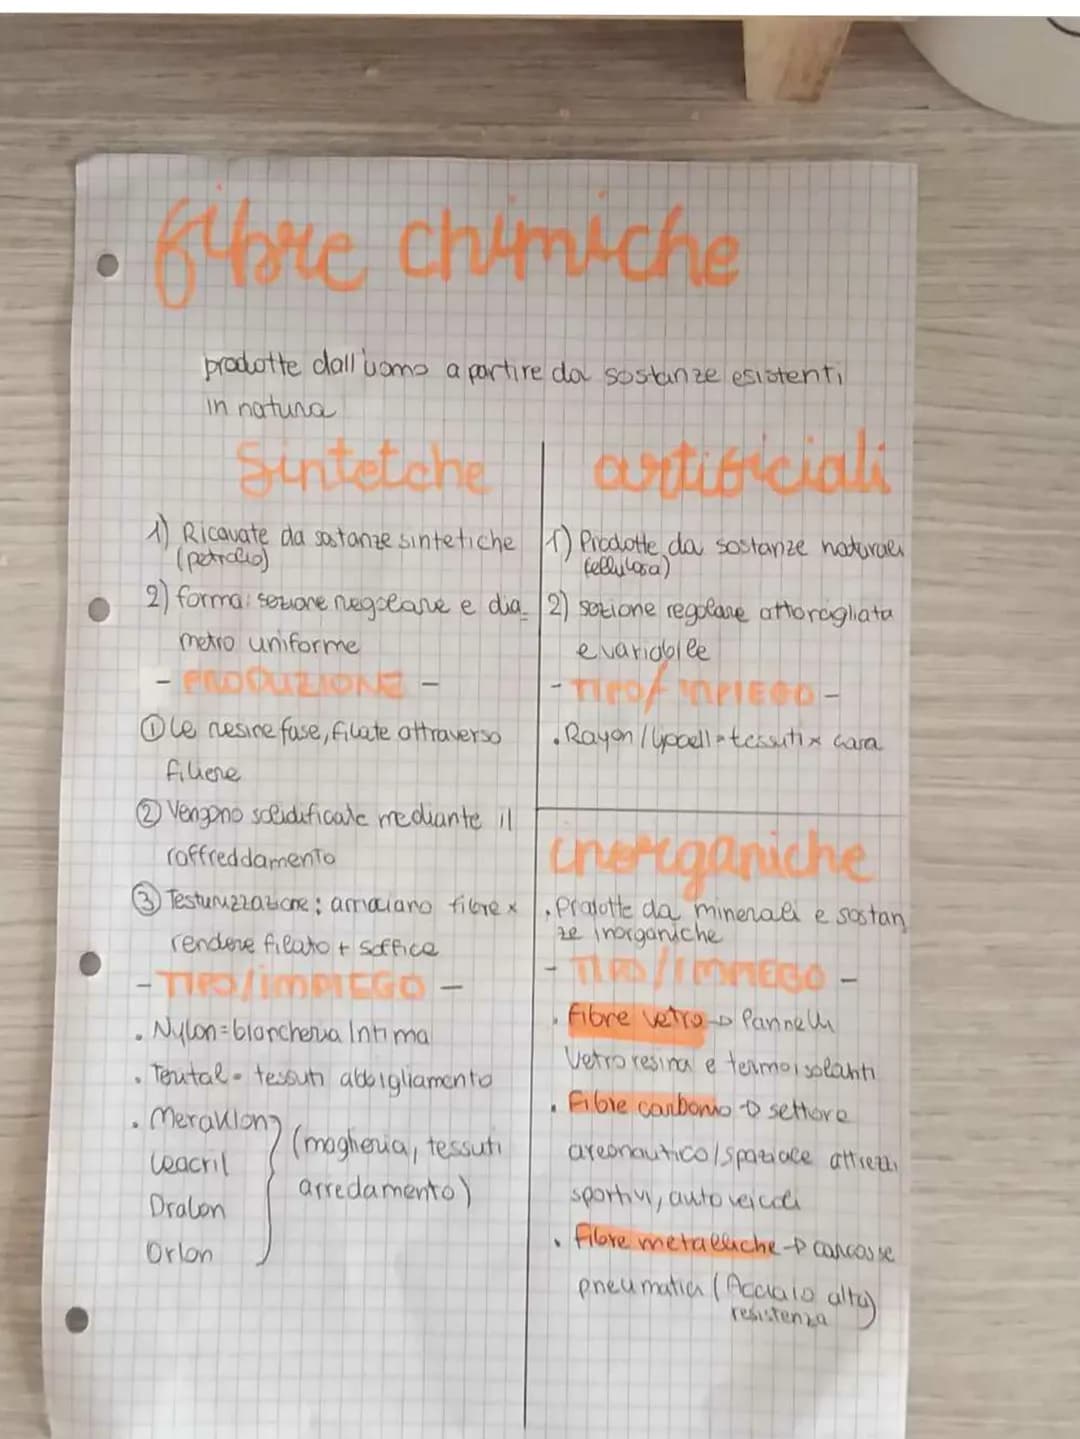 fibre chimiche
prodotte dall'uomo a partire da sostanze esistenti
in natura
Sintetche
1) Ricavate da sostanze sintetiche
(petrolio)
2) forma: sezione regolare e dia-
metro uniforme
- PRODUZIONE -
① Le resine fuse, filate attraverso
filiere
② Vengono solidificate mediante il
raffreddamento
③ Testurizzazione: arricciano fibre x
rendere filato + soffice
- TIPO/IMPIEGO -
• Nylon = biancheria Intima
• Terital = tessuti abbigliamento
• Meraklon
Leacril
Dralon
Orlon
(maglieria, tessuti
arredamento)
artificiali
1) Prodotte da sostanze naturali
(cellulosa)
2) sezione regolare attorcigliata
e variabile
- TIPO/IMPIEGO -
• Rayon / lyocell = tessuti x casa
inorganiche
• Prodotte da minerali e sostan
ze inorganiche
- TIPO/IMPIEGO -
• Fibre vetro → Pannelli
Vetroresina e termoisolanti
• Fibre carbonio → settore
areonautico/spaziale attrezzi
sportivi, autoveicoli
• Fibre metalliche → carcasse
pneumatici (Acciaio alta)
resistenza